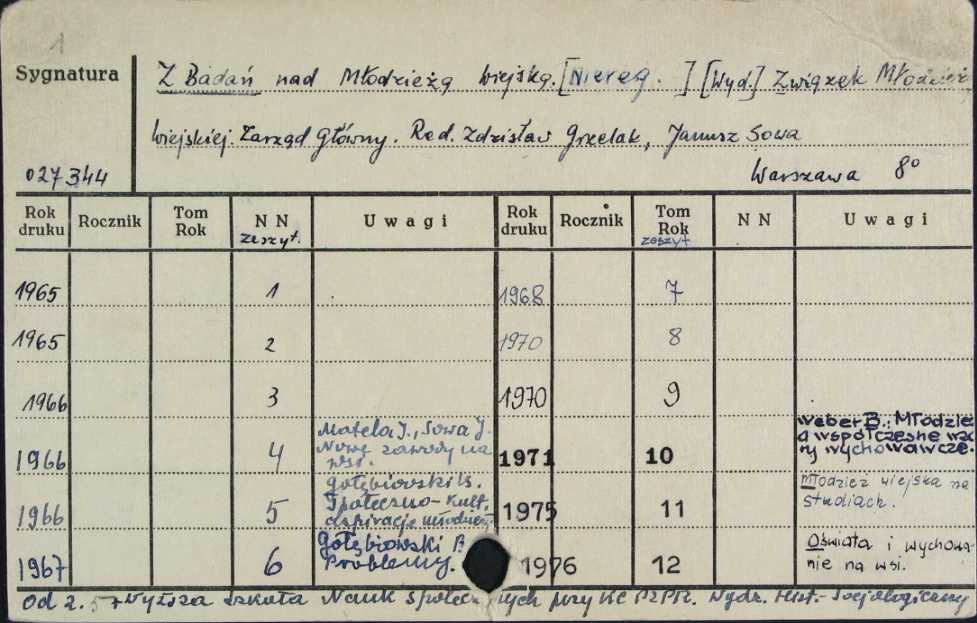 1
Sygnatura
Z Badań nad Młodzieżą Wiejską. [Niereg. ] [Wyd.] Związek Młodzież
Wiejskiej. Zarząd Główny. Red. Zdzisław Grzelak, Janusz Sowa
027344
Warszawa 8°
Rok druku Rocznik Tom Rok N N zeszyt. Uwagi Rok druku Rocznik Tom Rok zeszyt N N Uwagi
1965 1 1968 7
1965 2 1970 8
1966 3 1970 9
1966 4 Matela J., Sowa J. Nowe zawody na wsi. 1971 10 Weber B.: Młodzież a współczesne wzory wychowawcze.
1966 5 Gołębiowski B. Społeczno-kult. aspiracje młodzieży 1975 11 Młodzież wiejska na studiach.
1967 6 Gołębiowski B Problemy. 1976 12 Oświata i wychowanie na wsi.
Od z. 5 Wyższa Szkoła Nauk Społecznych przy KC PZPR. Wydz. Hist.-Socjologiczny